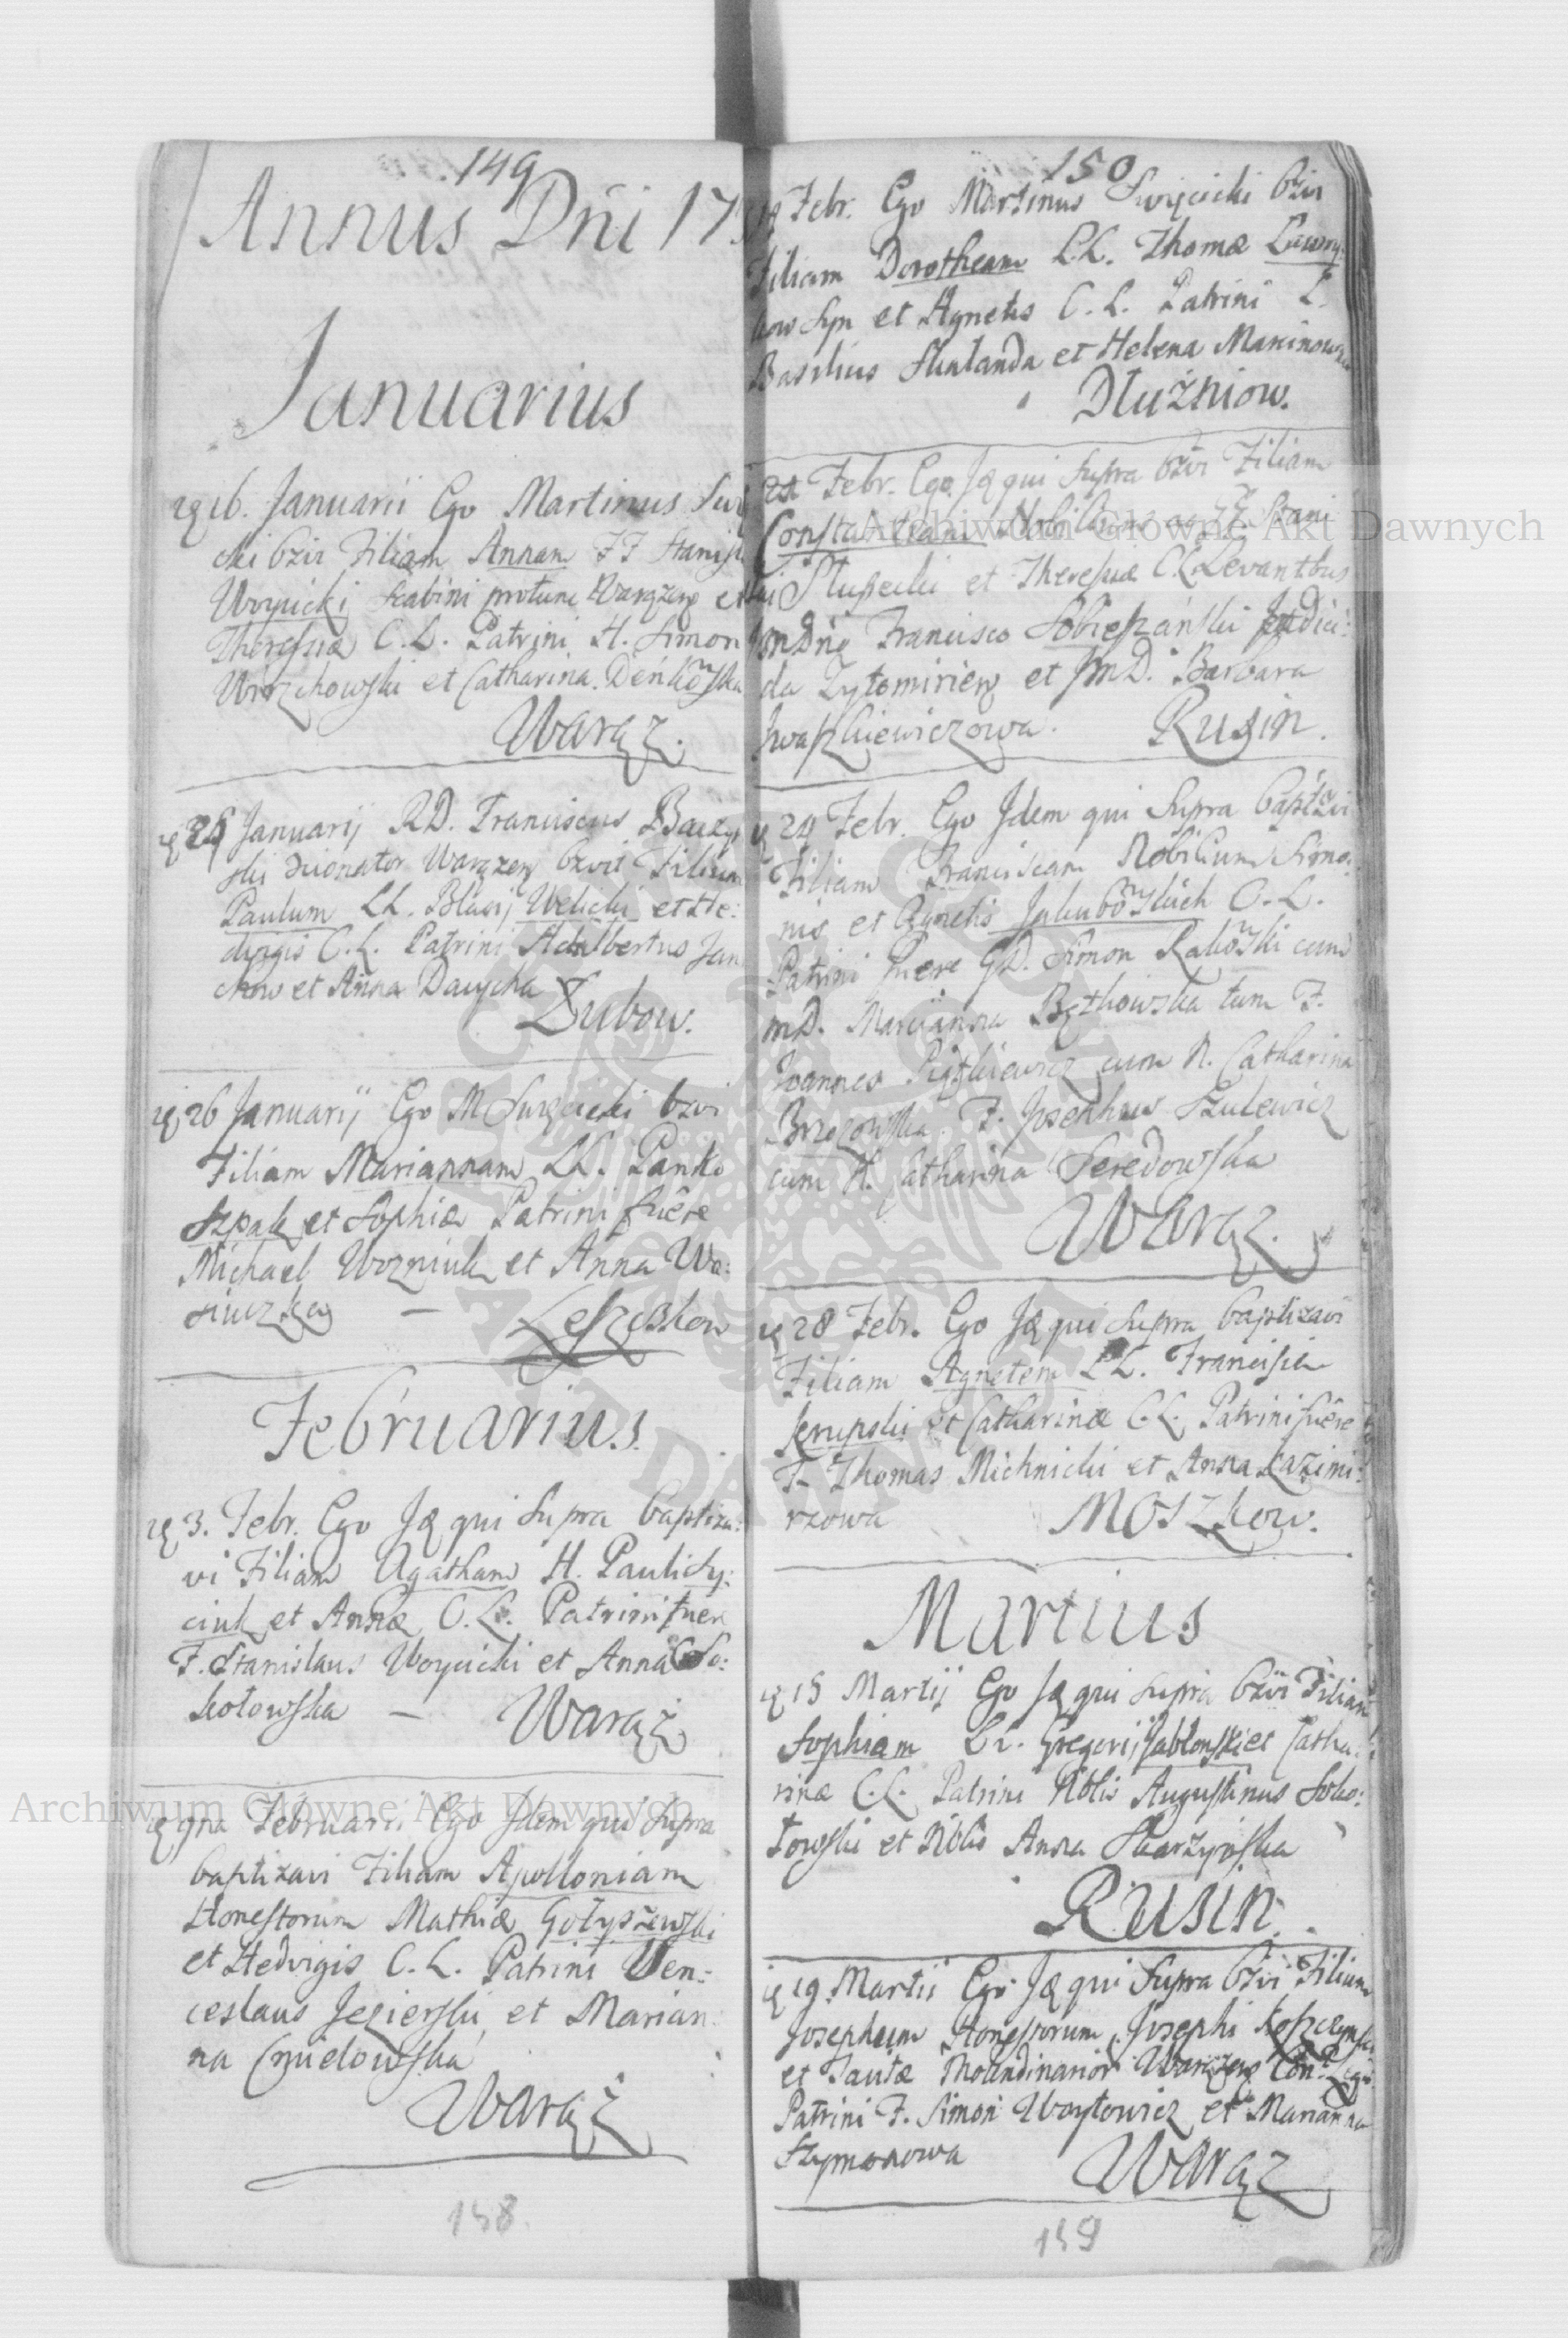 149
Annus Dni 17
Januarius
16. Januarii Ego Martinus
ski bzvi Filiam Annam FF
Woyncki Scabini protunc Warązen et
Theresiæ C. L. Patrini H. Simon
Wrzchowski et Catharina
Warąz.
Januarij RD. Franciscus
ski Warązen bzvit Filium
Paulum LL. Blasij Welicki et He:
dvigis C. L. Patrini Adalbertus Jan
kow et Anna Dauycha
Łubow.
26 Januarij Ego M Swięcicki bzvi
Filiam Mariannam LL. Panko
Szpak et Sophiæ Patrini fuere
Michael Wozniuk et Anna Wo:
siuczka
Leszczkow
Februarius.
3. Febr. Ego Id qui Supra baptiza:
vi Filiam Agatham H. Pauli Sy:
ciuk et Annæ C. L. Patrini fuere
F. Stanislaus Woycicki et Anna So:
kołowska — Warąż
9na Februarii Ego Idem qui Supra
baptizavi Filiam Apolloniam
Honestorum Mathiæ Gołyszewski
et Hedvigis C. L. Patrini Ven:
ceslaus Jezierski et Marian:
na Cmielowska
Warąż
158
150
Febr. Ego Martinus Swięcicki bzvi
Filiam Dorotheam LL. Thomæ
kow Syn et Agnetis C. L. Patrini L.
Basilius et Helena
Dłużniow.
Febr. Ego Id qui Supra bzvi Filiam
Constantiam Nobilium
Słupecki et Theresiæ C. L. Levantbus
Francisco Sobieszański
Zytomirien et Barbara
Iwaszkiewiczowa. Rusin.
24 Febr. Ego Idem qui Supra baptizvi
Filiam Franciscam Nobilium Simo:
nis et Agnetis Jakubowskich C. L.
Patrini fuere GD. Simon Rakowski cum
MD. Marianna Bętkowska tum F.
Joannes Piątkiewicz cum N. Catharina
Brzozowska. F. Josephus Szulewicz
cum H. Catharina Seredowska
Warąz.
28 Febr. Ego Id qui Supra baptizavi
Filiam Agnetem LL. Francisci
Krupski et Catharinæ C. L. Patrini fuere
F. Thomas Michnicki et Anna Kazimi:
rzowa Moszkow.
Martius
15 Martij Ego Id qui Supra bzvi Filiam
Sophiam LL. Gregorij Jabłonski et Catha:
rinæ C. L. Patrini Nblis Augustinus Soko:
łowski et Nblis Anna Skarzynska
Rusin.
19 Martii Ego Id qui Supra bzvi Filium
Josephum Honestorum Josephi
et Molendinarior Warązen
Patrini F. Simon Woytowicz et Marianna
Szymonowa Warąz
159